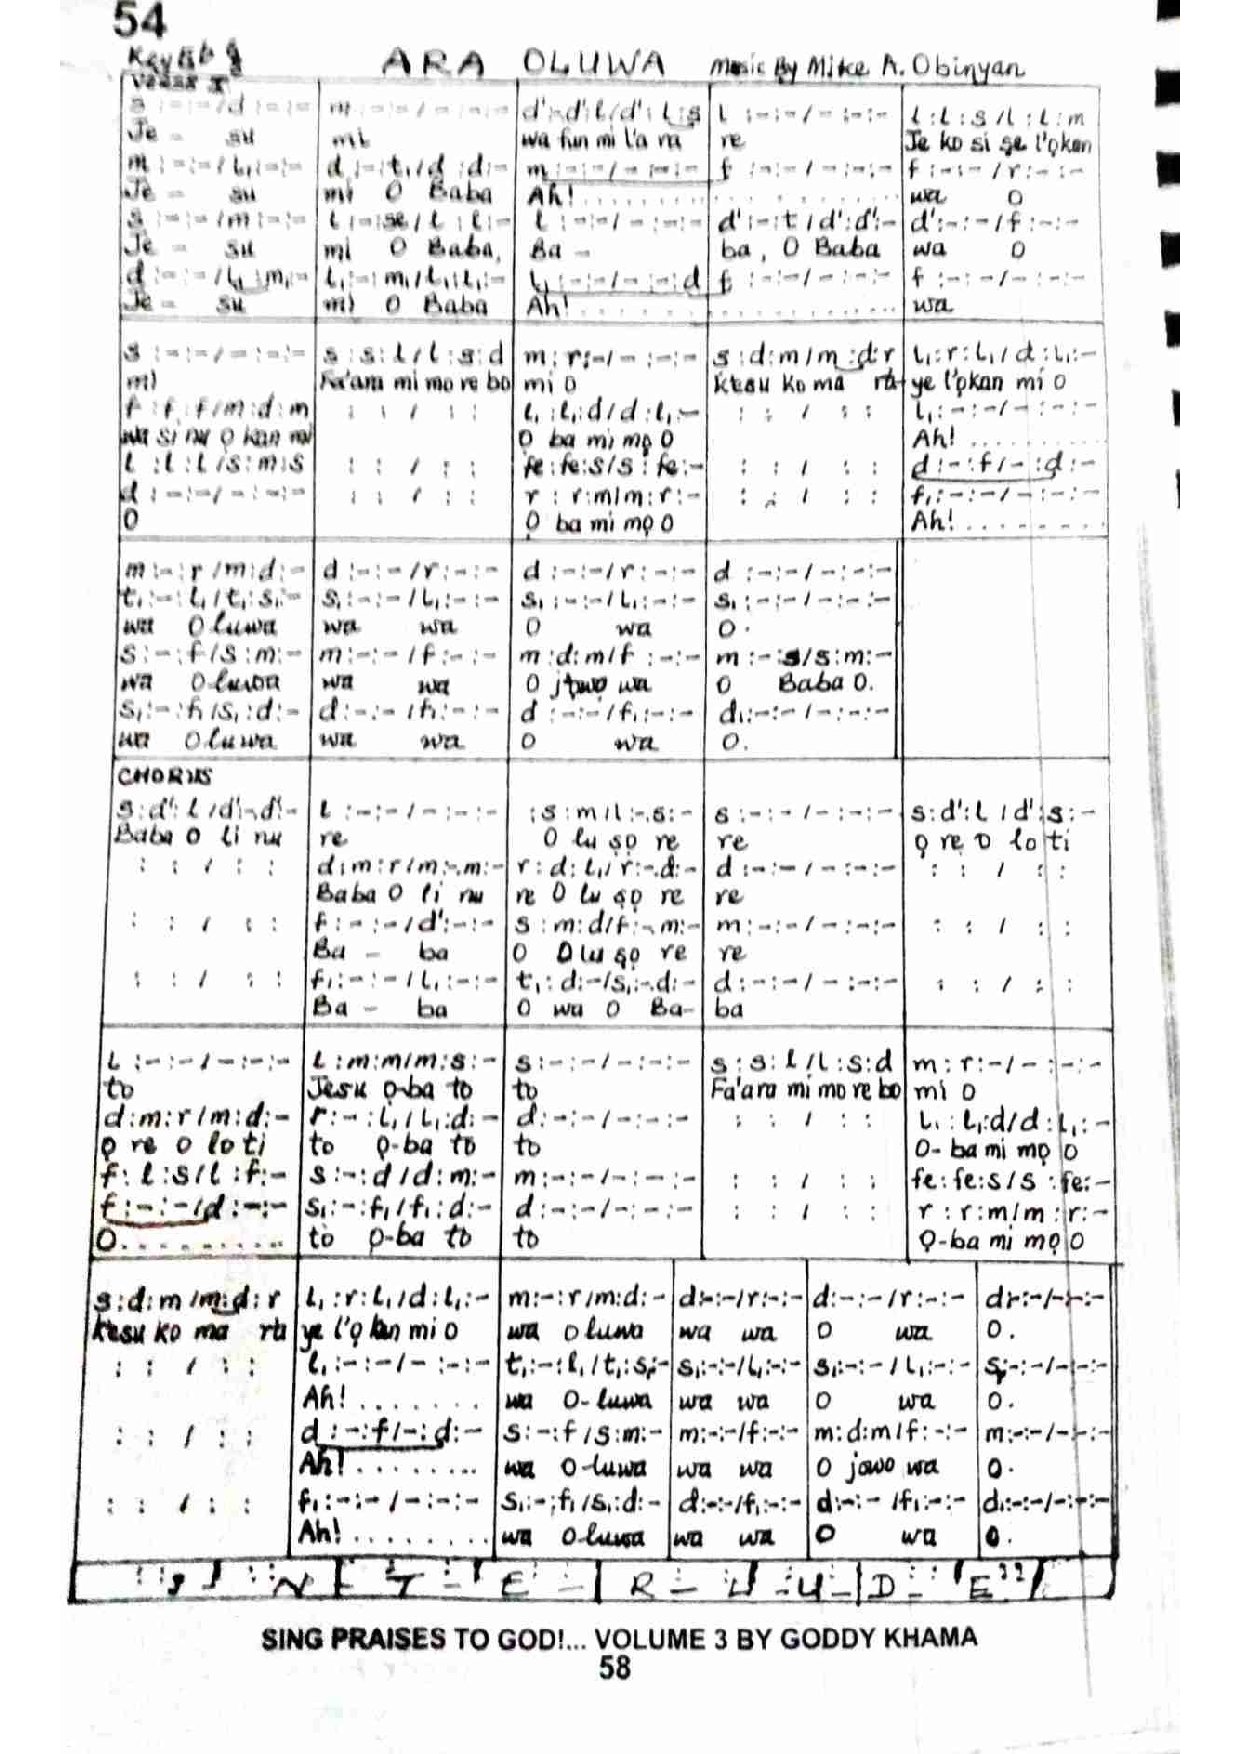 54
ARA OLUWA Music By Mike A. Obinyan
s :-:-/d :-:- m :-:-/-:-:- d':-d':l/d':l:s l :-:-/-:-:- l:l:s/l:l:m
Je - su mi wa fun mi l'a ra re Je ko si se l'ọkan
m :-:-/l₁:-:- d :-:t₁/d :d:- m:-:-/-:-:- f :-:-/-:-:- f :-:-/r:-:-
Je - su mi O Baba Ah! . . . . . . . . . . wa O
s :-:-/m:-:- l :-:se/l :l:- l :-:-/-:-:- d':-:t/d':d':- d':-:-/f:-:-
Je - su mi O Baba, Ba - ba, O Baba wa O
d :-:-/l₁:m₁:- l₁:-:m₁/l₁:l₁:- l₁:-:-/-:-:d f :-:-/-:-:- f :-:-/-:-:-
Je - su mi O Baba Ah! . . . . . . . . . . wa
s :-:-/-:-:- s:s:l/l:s:d m:r:-/-:-:- s:d:m/m:d:r l₁:r:l₁/d:l₁:-
mi Fa'ara mi mo re bo mi o ye l'ọkan mi o
f:f:f/m:d:m : : / : : l₁:l₁:d/d:l₁:- : : / : : l₁:-:-/-:-:-
O ba mi mọ O Ah! . . . . . . . .
l :l:l/s:m:s : : / : : fe:fe:s/s:fe:- : : / : : d:-:f/-:d:-
d :-:-/-:-:- : : / : : r:r:m/m:r:- : : / : : f₁:-:-/-:-:-
O O ba mi mọ O Ah! . . . . . . . .
m:-:r/m:d:- d:-:-/r:-:- d:-:-/r:-:- d:-:-/-:-:-
t₁:-:l₁/t₁:s₁:- s₁:-:-/l₁:-:- s₁:-:-/l₁:-:- s₁:-:-/-:-:-
wa Oluwa wa wa O wa O.
s:-:f/s:m:- m:-:-/f:-:- m:d:m/f:-:- m:-:s/s:m:-
wa Oluwa wa wa O wa O Baba O.
s₁:-:f₁/s₁:d:- d:-:-/f₁:-:- d:-:-/f₁:-:- d₁:-:-/-:-:-
wa Oluwa wa wa O wa O.
CHORUS
s:d':l/d':-.d':- l:-:-/-:-:- :s:m/l:-.s:- s:-:-/-:-:- s:d':l/d':s:-
Baba O li nu re O lu sọ re re ọ rẹ O lo ti
: : / : : d:m:r/m:-.m:- r:d:l₁/r:-.d:- d:-:-/-:-:- : : / : :
Baba O li nu re O lu sọ re re
: : / : : f:-:-/d':-:- s:m:d/f:-.m:- m:-:-/-:-:- : : / : :
Ba - ba O O lu sọ re re
: : / : : f₁:-:-/l₁:-:- t₁:d:-/s₁:-.d:- d:-:-/-:-:- : : / : :
Ba - ba O wa O Ba- ba
l:-:-/-:-:- l:m:m/m:s:- s:-:-/-:-:- s:s:l/l:s:d m:r:-/-:-:-
to Jesu ọ-ba to to Fa'ara mi mo re bo mi o
d:m:r/m:d:- r:-:l₁/l₁:d:- d:-:-/-:-:- : : / : : l₁:l₁:d/d:l₁:-
ọ re o lo ti to ọ-ba to to O- ba mi mọ O
f:l:s/l:f:- s:-:d/d:m:- m:-:-/-:-:- : : / : : fe:fe:s/s:fe:-
f:-:-/d:-:- s₁:-:f₁/f₁:d:- d:-:-/-:-:- : : / : : r:r:m/m:r:-
O. . . . . . . . . to ọ-ba to to Ọ-ba mi mọ O
s:d:m/m:d:r l₁:r:l₁/d:l₁:- m:-:r/m:d:- d:-:-/r:-:- d:-:-/r:-:- d:-:-/-:-:-
kesu ko ma ra ye l'ọ kan mi o wa oluwa wa wa O wa O.
: : / : : l₁:-:-/-:-:- t₁:-:l₁/t₁:s₁:- s₁:-:-/l₁:-:- s₁:-:-/l₁:-:- s₁:-:-/-:-:-
Ah! . . . . . . . wa O-luwa wa wa O wa O.
: : / : : d:-:f/-:d:- s:-:f/s:m:- m:-:-/f:-:- m:d:m/f:-:- m:-:-/-:-:-
Ah! . . . . . . . wa O-luwa wa wa O jowo wa O.
: : / : : f₁:-:-/-:-:- s₁:-:f₁/s₁:d:- d:-:-/f₁:-:- d:-:-/f₁:-:- d₁:-:-/-:-:-
Ah! . . . . . . . wa Oluwa wa wa O wa O.
I N T E R - L U D E
SING PRAISES TO GOD!... VOLUME 3 BY GODDY KHAMA
58